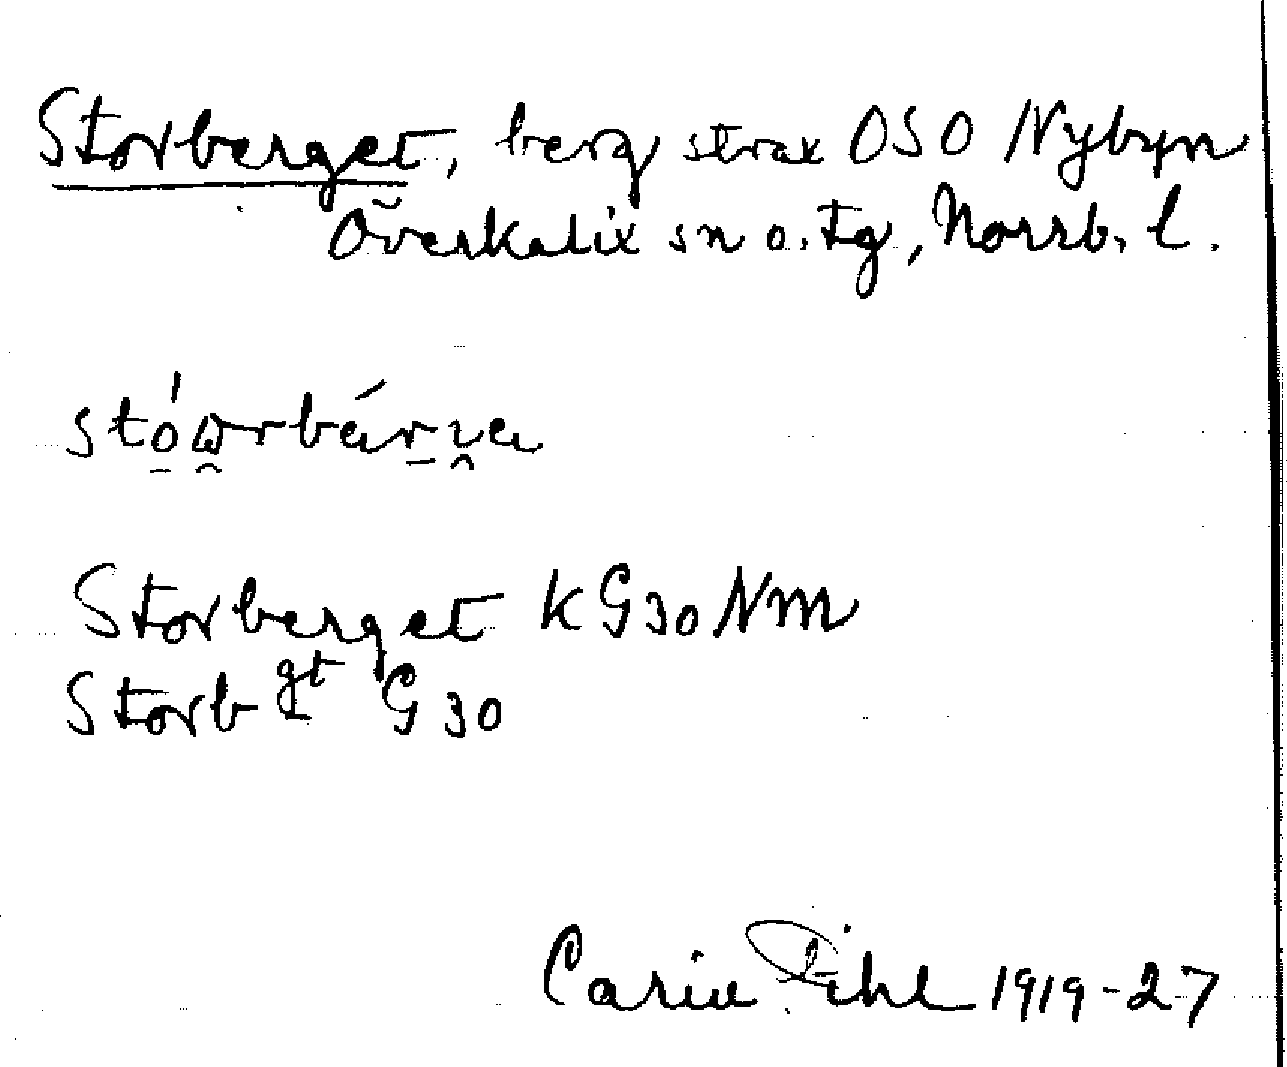 Storberget, berg strax OSO Nybyn
Överkalix sn o. tg, Norrb. l.
Storberget KG30NM
Storbgt G30
Carin Pihl 1919-27